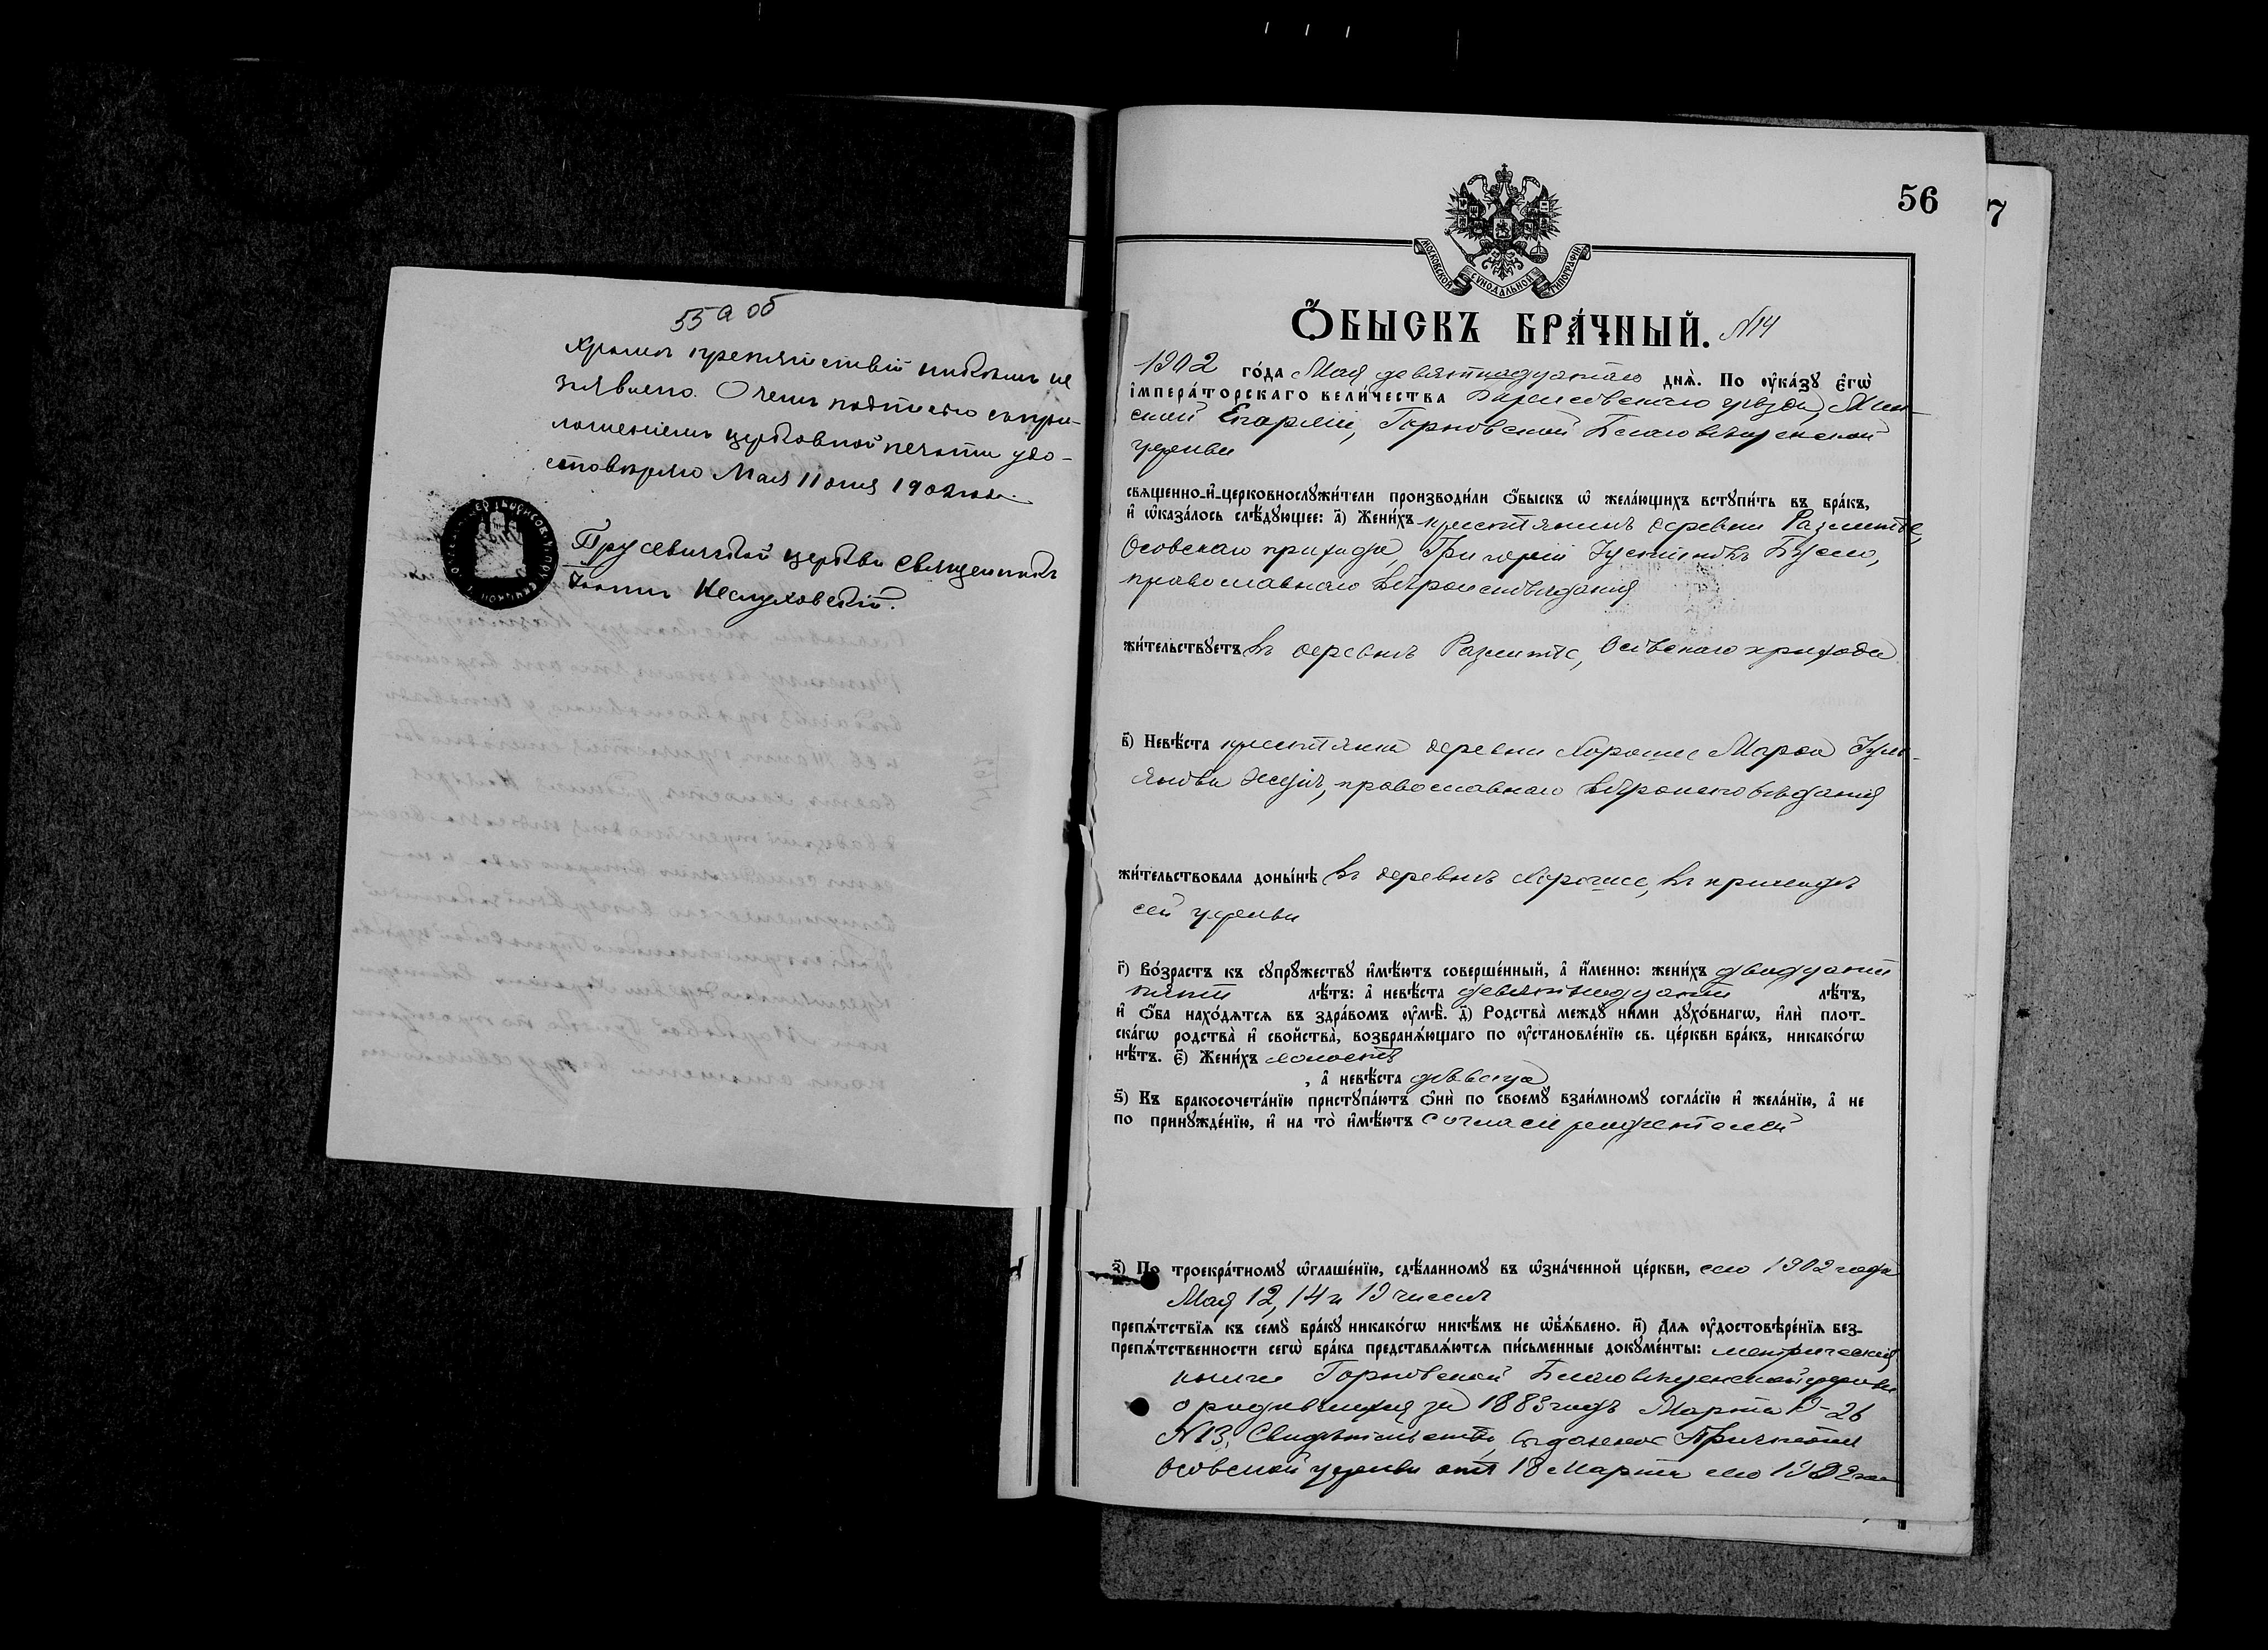 55а об
храмѣ препятствій никѣмъ не
заявлено. О чемъ подписью съ при-
ложеніемъ церковной печати удо-
стовѣряю Мая 11 дня 1902 года.
Прусевичской церкви Священникъ
Неслуховскій.
56
7
МОСКОВСКОЙ СѴНОДАЛЬНОЙ ТИПОГРАФІИ
Ѻ҆БЫСКЪ БРА́ЧНЫЙ. №14
1902 го́да Мая девятнадцатаго днѧ̀. По ᲂу҆ка́зꙋ є҆гѡ̀
і҆мпера́торскаго вели́чества Борисовскаго уѣзда, Мин-
ской Епархіи, Горновской Благовѣщенской
церкви
свѧщенно-и҆-церковнослꙋжи́тели производи́ли ѻ҆́быскъ ѡ҆ жела́ющихъ встꙋпи́ть въ бра́къ,
и҆ ѡ҆каза́лось слѣ́дꙋющее: а҃) Жени́хъ крестьянинъ деревни
Осовскаго прихода, Григорій Бусло,
православнаго вѣроисповѣданія
жи́тельствꙋетъ въ деревнѣ Осовскаго прихода
в҃) Невѣ́ста крестьянка деревни Марѳа
православнаго вѣроисповѣданія
жи́тельствовала доны́нѣ въ деревнѣ въ приходѣ
сей церкви
г҃) Во́зрастъ къ сꙋпрꙋ́жествꙋ и҆мѣ́ютъ соверше́нный, а҆ и҆́менно: жени́хъ двадцати
пяти лѣ́тъ: а҆ невѣ́ста девятнадцати лѣ́тъ,
и҆ ѻ҆́ба нахо́дѧтсѧ въ здра́вомъ ᲂу҆мѣ̀. д҃) Родства̀ междꙋ̀ ни́ми дꙋхо́внагѡ, и҆лѝ плот-
ска́гѡ родства̀ и҆ сво́йства̀, возбранѧ́ющаго по ᲂу҆становле́нїю св. це́ркви бра́къ, никако́гѡ
нѣ́тъ. є҃) Жени́хъ холостъ
, а҆ невѣ́ста дѣвица
ѕ҃) Къ бракосочета́нїю пристꙋпа́ютъ ѻ҆нѝ по своемꙋ̀ взаи́мномꙋ согла́сїю и҆ жела́нїю, а҆ не
по принꙋжде́нїю, и҆ на то̀ и҆мѣ́ютъ согласіе родителей
з҃) По троекра́тномꙋ ѡ҆глаше́нїю, сдѣ́ланномꙋ въ ѡ҆зна́ченной це́ркви, сего 1902 года
Мая 12, 14 и 19 чиселъ
препѧ́тствїѧ къ семꙋ̀ бра́кꙋ никако́гѡ никѣ́мъ не ѡ҆б̾ѧ́влено. и҃) Длѧ ᲂу҆достовѣре́нїѧ без-
препѧ́тственности сегѡ̀ бра́ка представлѧ́ютсѧ пи́сьменные докꙋме́нты: метрическія
книги Горновской Благовѣщенской церкви
о родившихся за 1883 годъ Марта 19-26
№13, Свидѣтельство, выданное Причтомъ
Осовской церкви отъ 18 Марта сего 1902 года